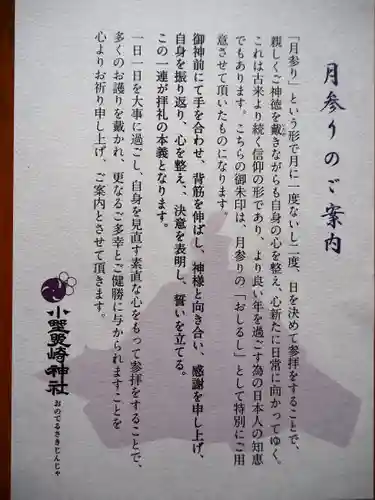 月参りのご案内
「月参り」という形で月に一度ないし二度、日を決めて参拝をすることで、
親しくご神徳を戴きながらも自身の心を整え、心新たに日常に向かってゆく。
これは古来より続く信仰の形であり、より良い年を過ごす為の日本人の知恵
でもあります。こちらの御朱印は、月参りの「おしるし」として特別にご用
意させて頂いたものになります。
御神前にて手を合わせ、背筋を伸ばし、神様と向き合い、感謝を申し上げ、
自身を振り返り、心を整え、決意を表明し、誓いを立てる。
この一連が拝礼の本義となります。
一日一日を大事に過ごし、自身を見直す素直な心をもって参拝をすることで、
多くのお護りを戴かれ、更なるご多幸とご健勝に与かられますことを
心よりお祈り申し上げ、ご案内とさせて頂きます。
小野照崎神社
おのてるさきじんじゃ